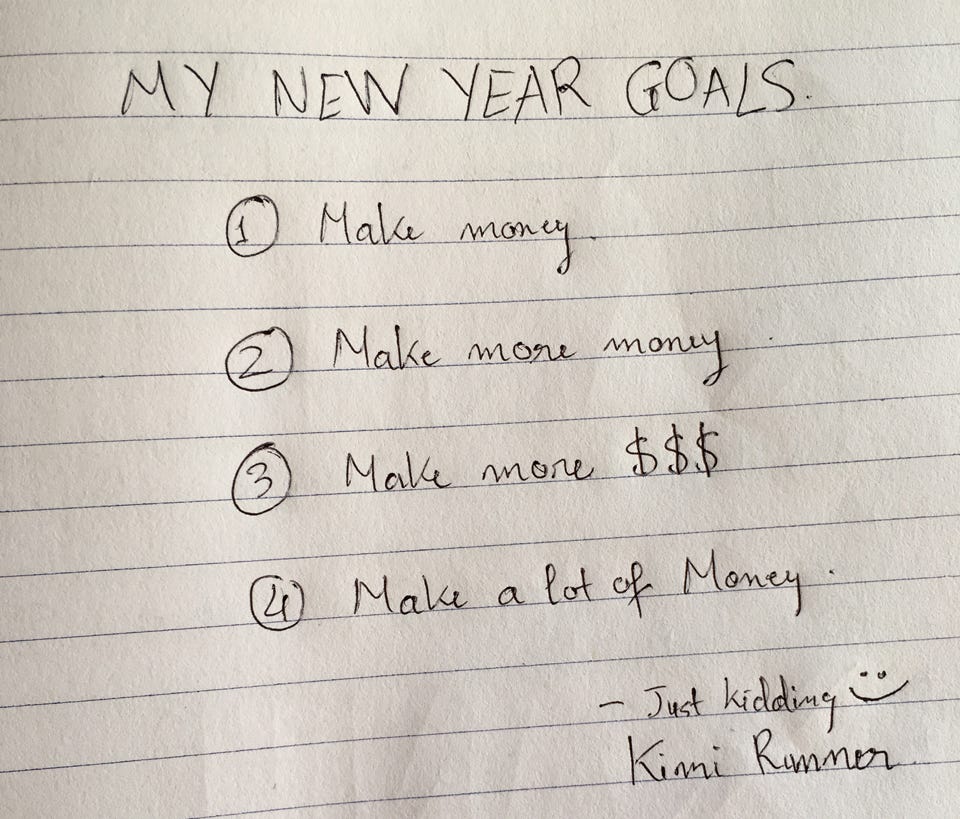 MY NEW YEAR GOALS.
① Make money.
② Make more money.
③ Make more $$$
④ Make a lot of Money.
- Just kidding
Kimi Runner